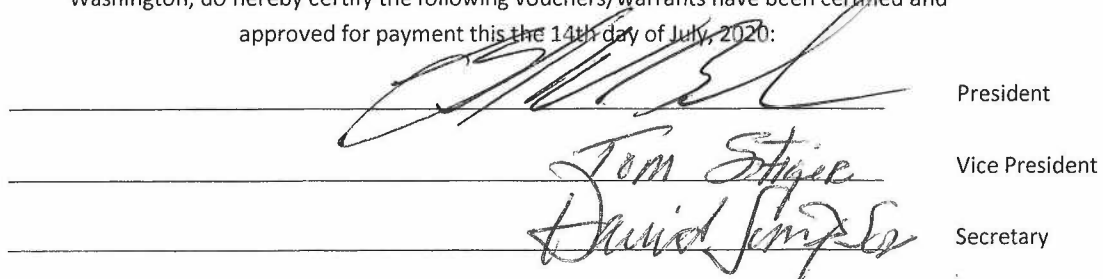 Washington, do hereby certify the following vouchers/warrants have been certified and
approved for payment this the 14th day of July, 2020:
President
Tom Stiger Vice President
David Simpson Secretary